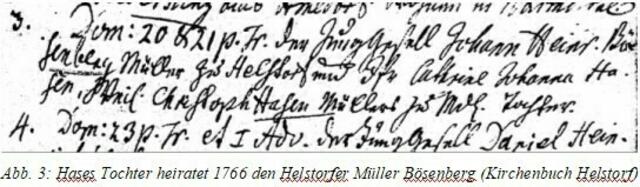 3. Dom: 20 & 21 p. Tr. der JungGesell Johann Heinr. Bö-
senberg Müller zu Helstorf und Jfr Cathrine Johanna Ha-
sen, weil. Christoph Hasen Müllers zu Mdl. Tochter.
4. Dom: 23 p. Tr. et I Adv. der JungGesell Daniel Hein-
Abb. 3: Hases Tochter heiratet 1766 den Helstorfer Müller Bösenberg (Kirchenbuch Helstorf)